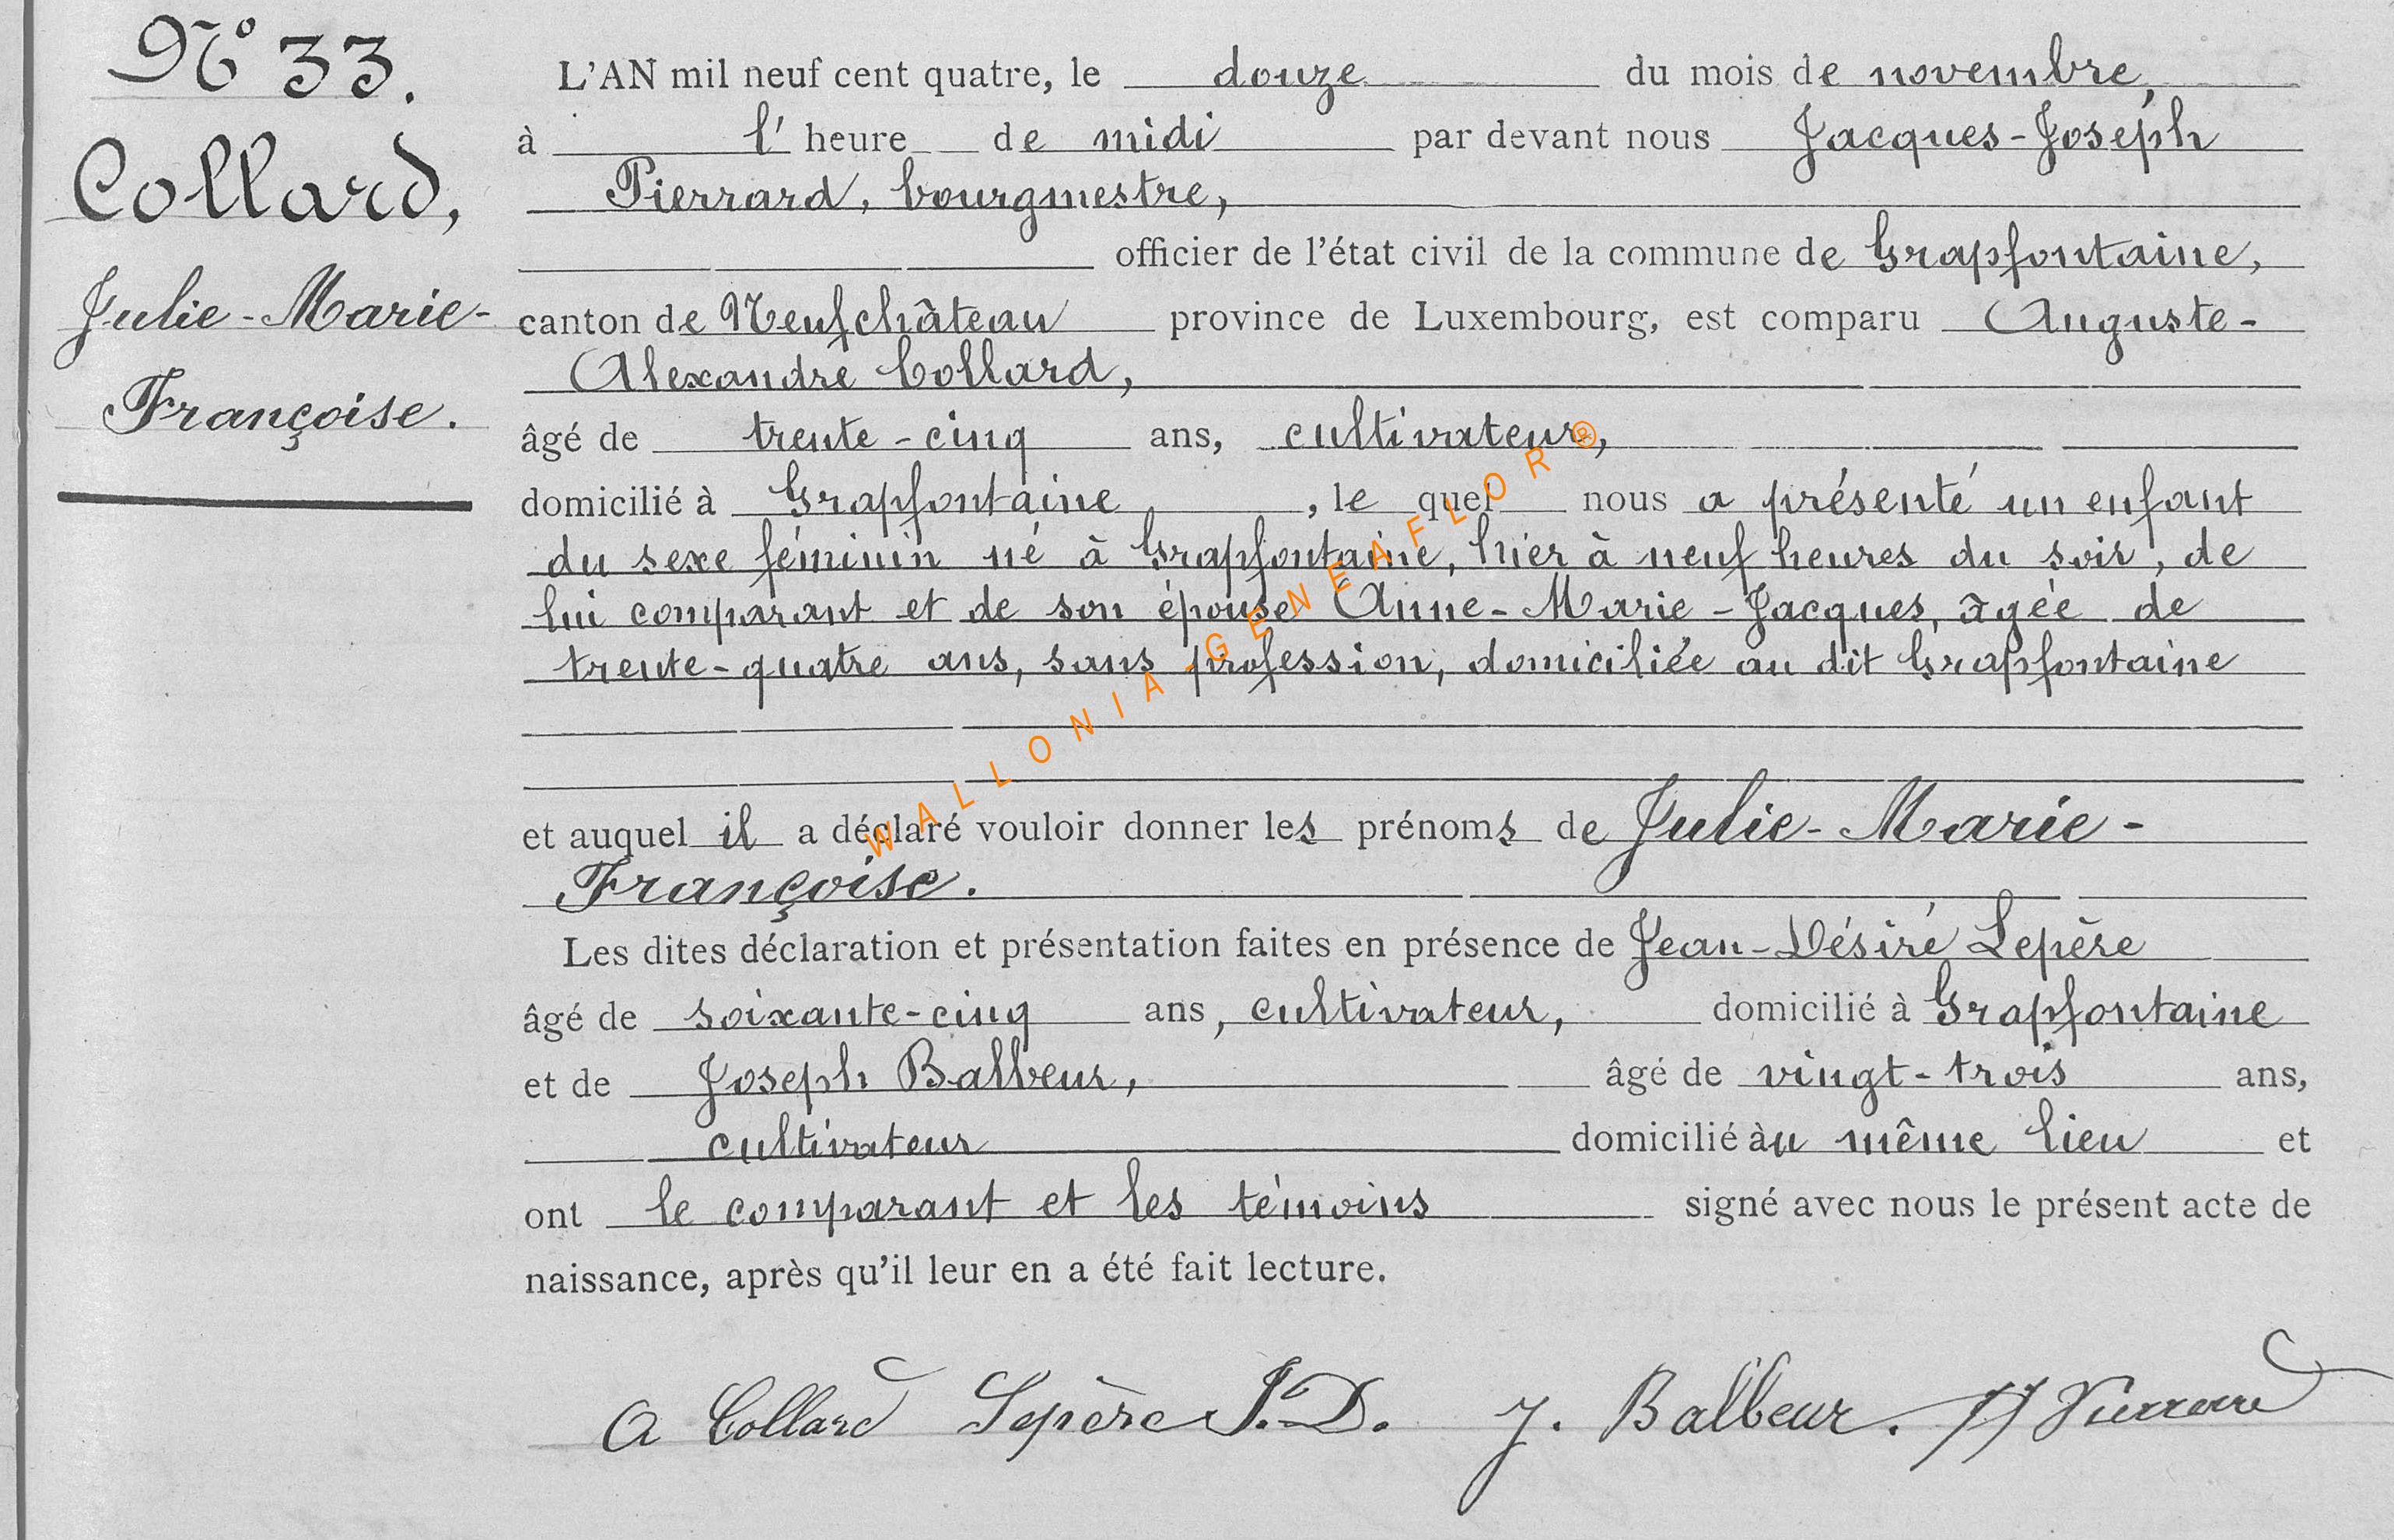 N° 33.
Collard,
Julie-Marie-
Françoise.
L'AN mil neuf cent quatre, le douze du mois de novembre,
à l'heure de midi par devant nous Jacques-Joseph
Pierrard, bourgmestre,
officier de l'état civil de la commune de Grapfontaine,
canton de Neufchâteau province de Luxembourg, est comparu Auguste-
Alexandre Collard,
âgé de trente-cinq ans, cultivateur,
domicilié à Grapfontaine, le quel nous a présenté un enfant
du sexe féminin né à Grapfontaine, hier à neuf heures du soir, de
lui comparant et de son épouse Anne-Marie-Jacques, âgée de
trente-quatre ans, sans profession, domiciliée au dit Grapfontaine
et auquel il a déclaré vouloir donner les prénoms de Julie-Marie-
Françoise.
Les dites déclaration et présentation faites en présence de Jean-Désiré Lepère
âgé de soixante-cinq ans, cultivateur, domicilié à Grapfontaine
et de Joseph Balbeur, âgé de vingt-trois ans,
cultivateur domicilié àu même lieu et
ont le comparant et les témoins signé avec nous le présent acte de
naissance, après qu'il leur en a été fait lecture.
A Collard Lepère J.D. J. Balbeur. JJ Pierrard
WALLONIA-GENEAFLOR®